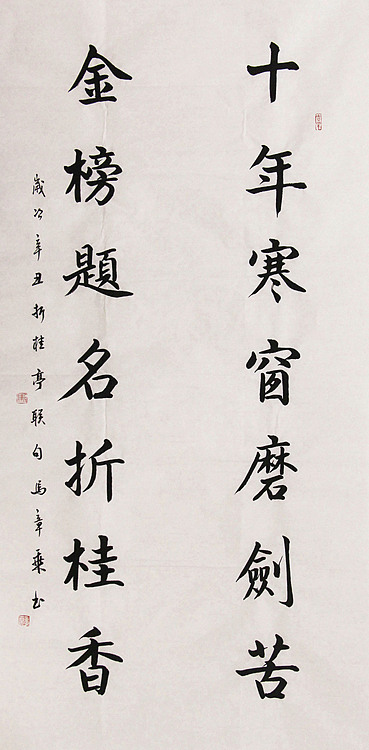 十年寒窗磨劍苦
金榜題名折桂香
歲次辛丑折桂亭联句馬章乘书